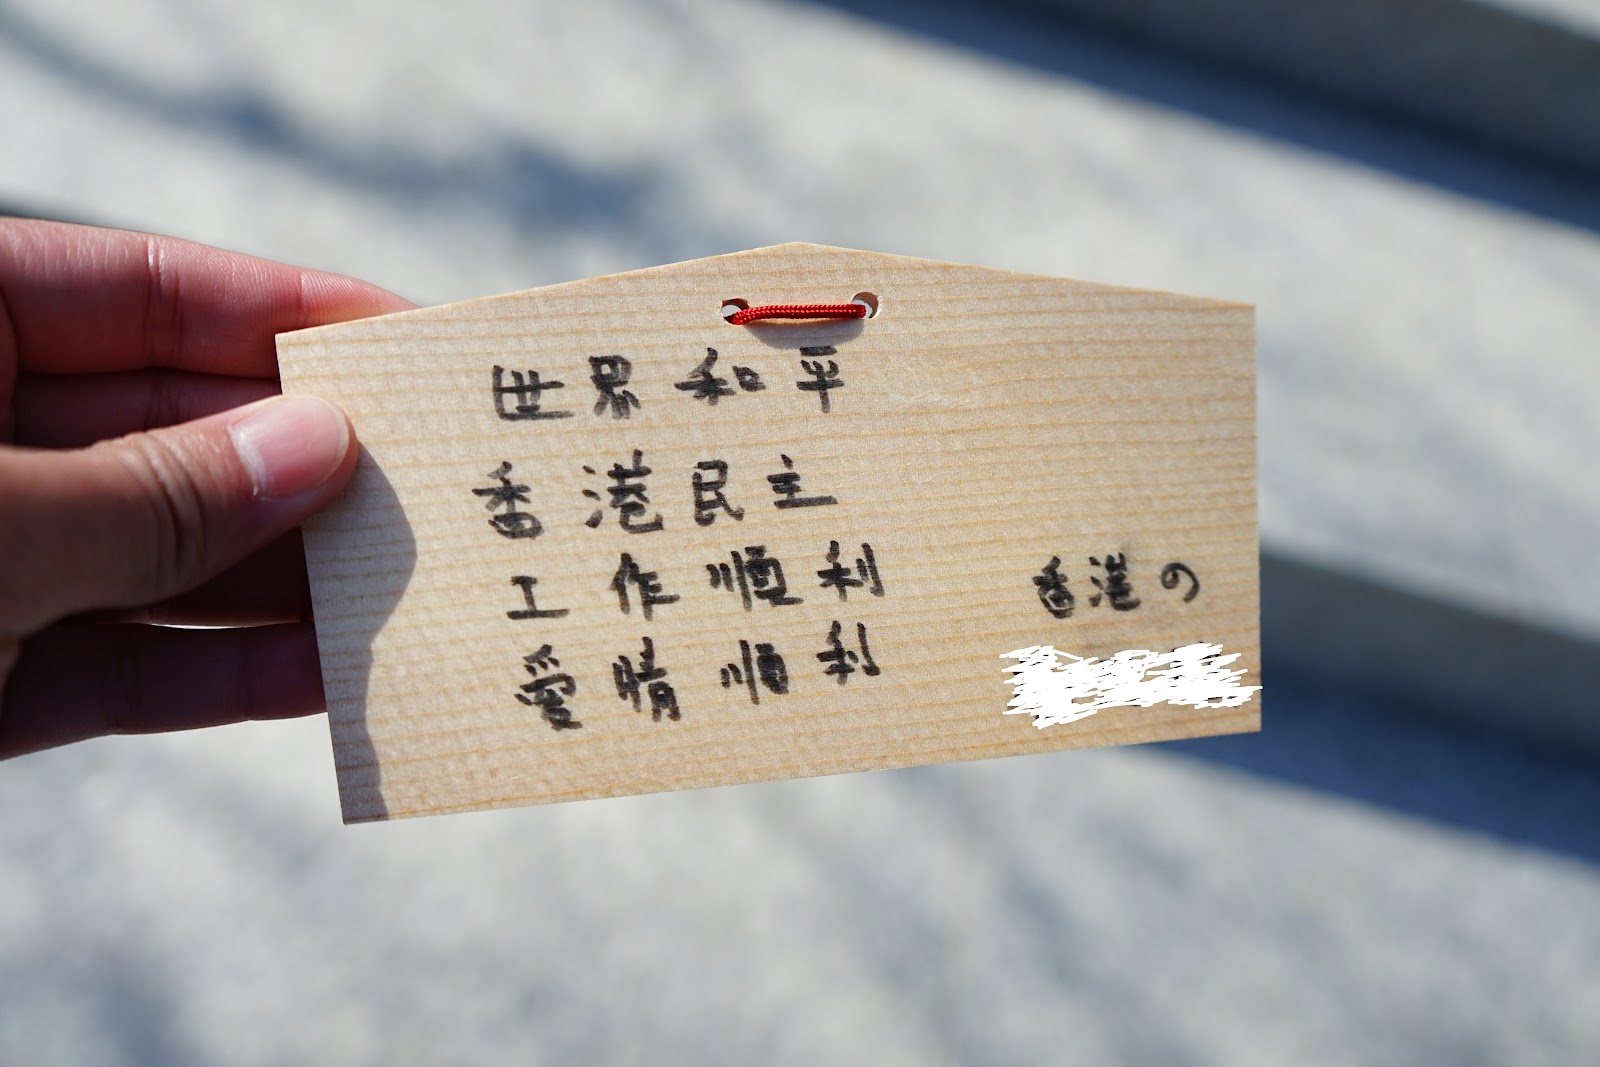 世界和平
香港民主
工作順利
愛情順利
香港の